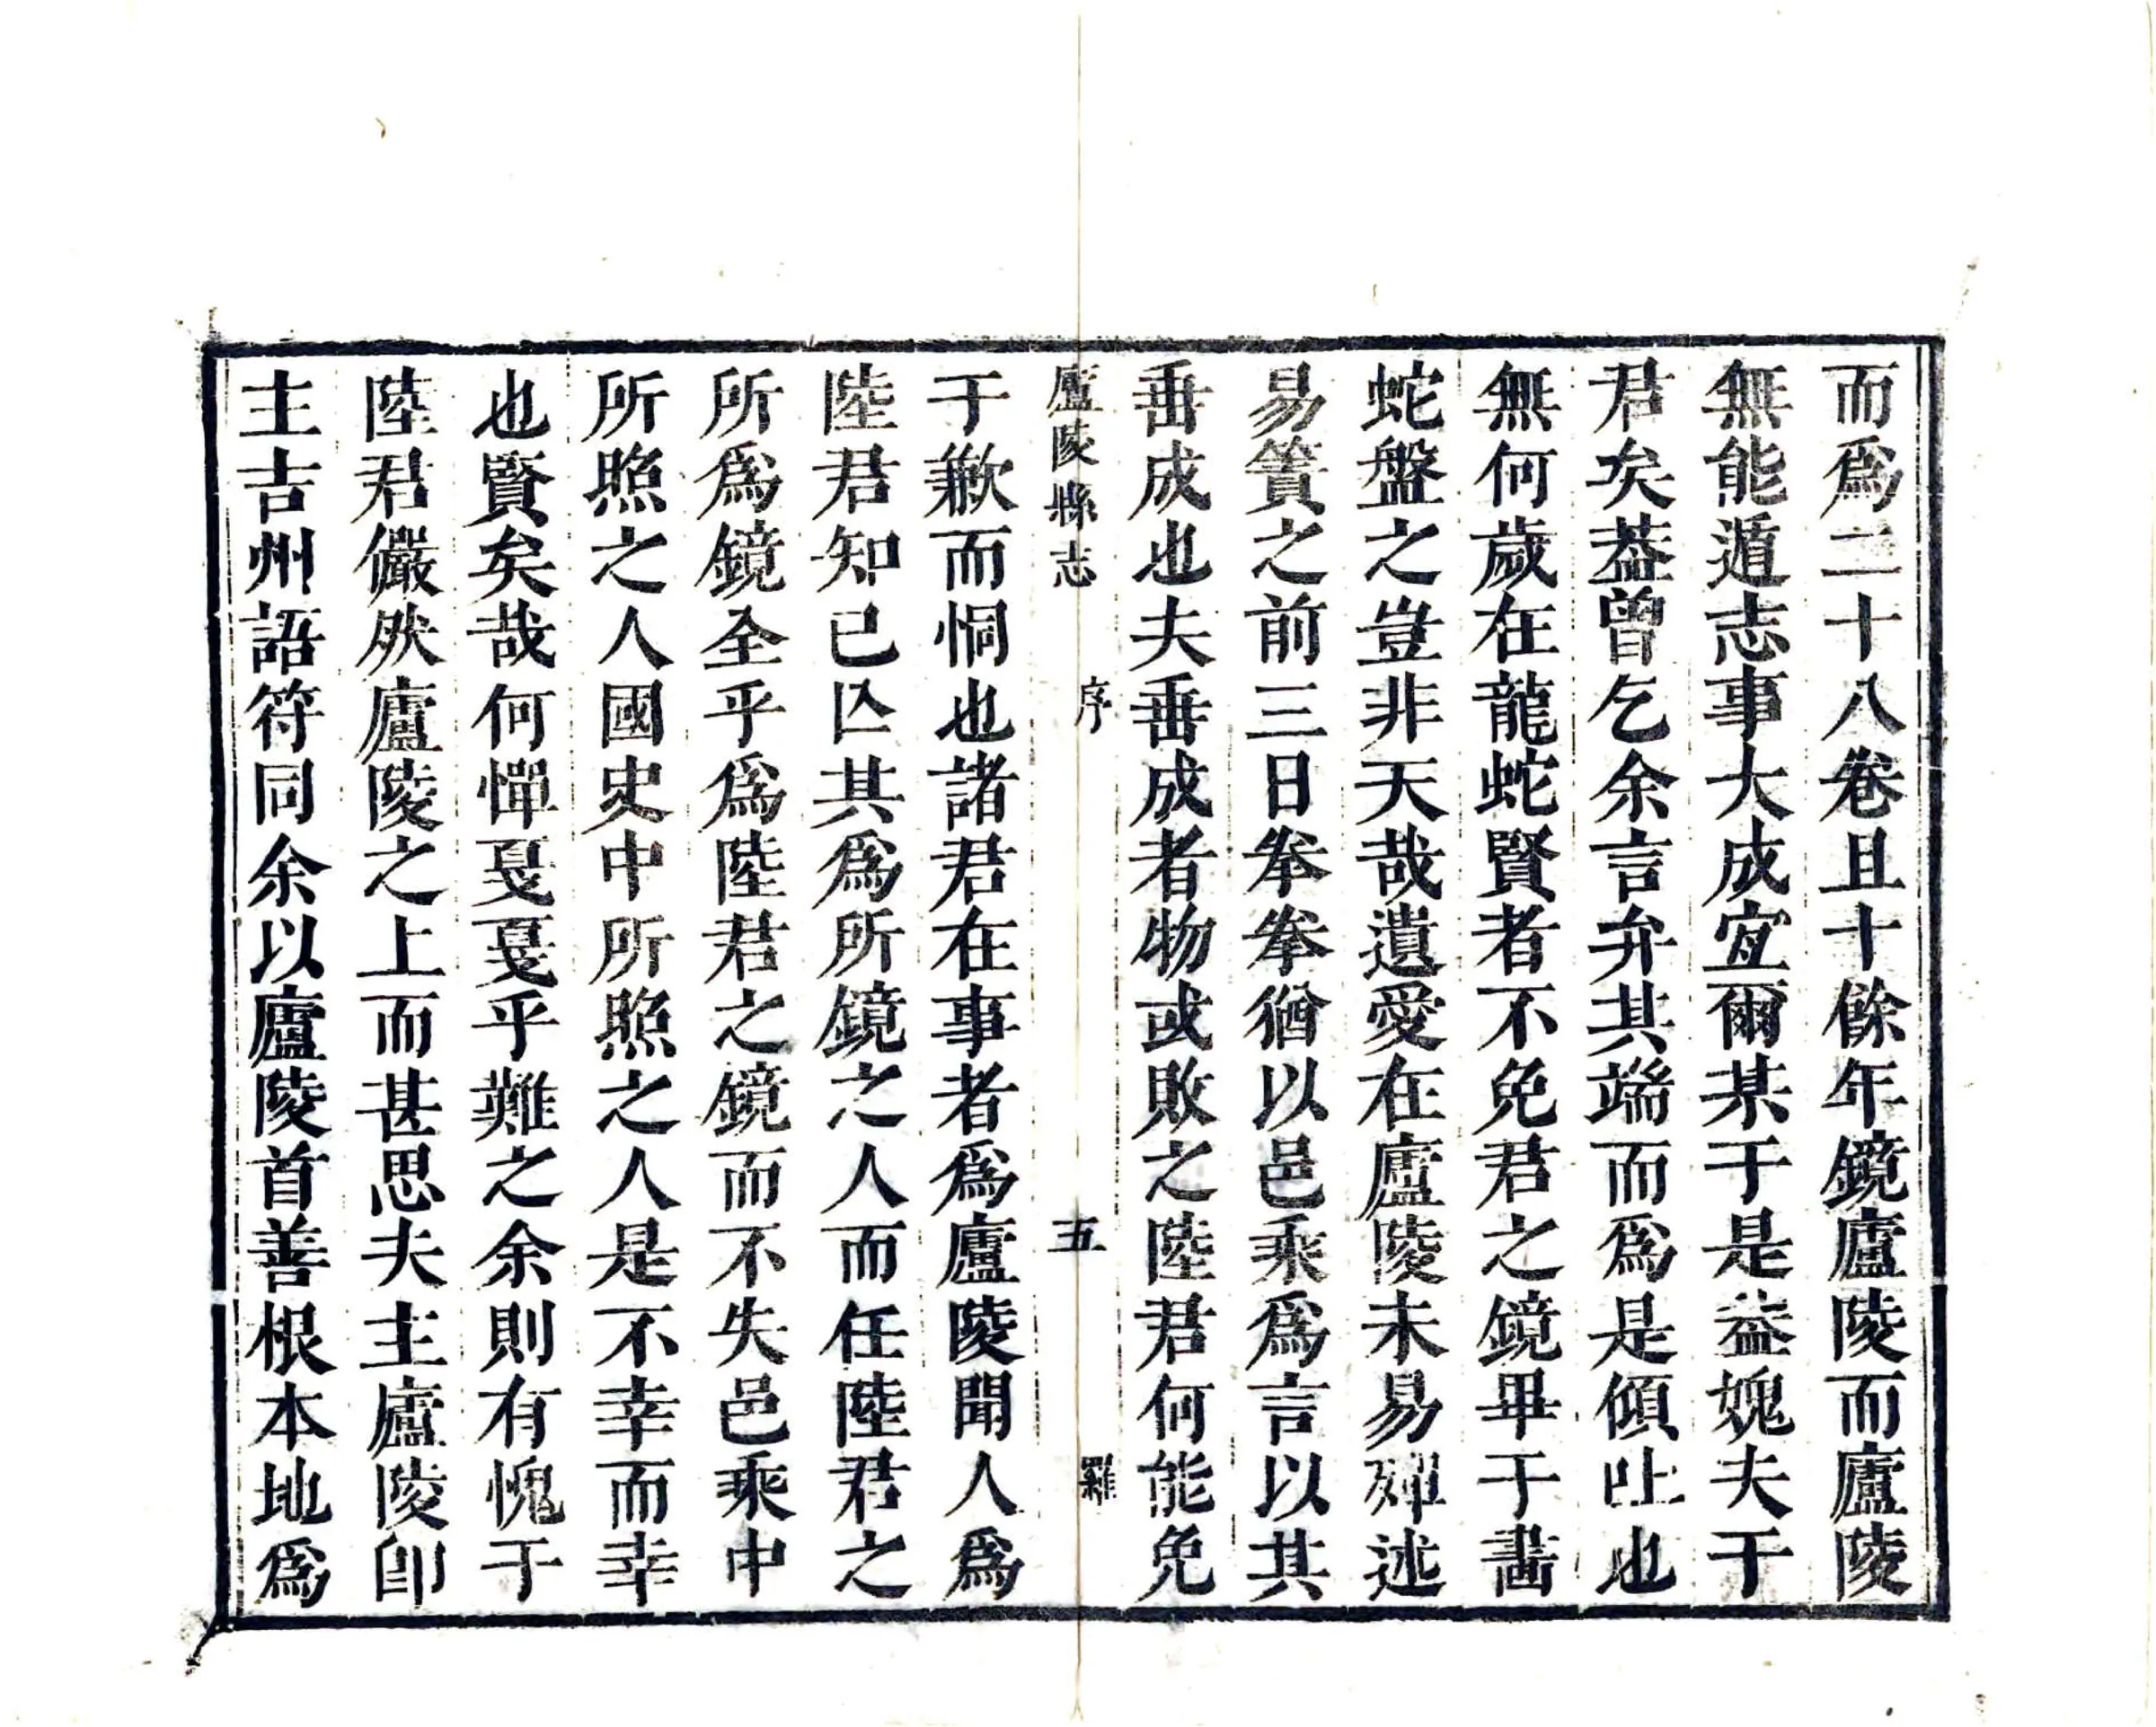 而爲二十八卷且十餘年鏡廬陵而廬陵
無能遁志事大成宐爾某于是益媿夫于
君矣葢曽乞余言弁其端而爲是傾吐也
無何歲在龍蛇賢者不免君之鏡畢于畵
蛇盤之豈非天哉遺愛在廬陵未易殫述
易簀之前三日拳拳猶以邑乘爲言以其
垂成也夫垂成者物或敗之陸君何能免
廬陵縣志 序 五 羅
于歉而恫也諸君在事者爲廬陵聞人爲
陸君知已亾其爲所鏡之人而任陸君之
所爲鏡全乎爲陸君之鏡而不失邑乘中
所照之人國史中所照之人是不幸而幸
也賢矣哉何憚戛戛乎難之余則有愧于
陸君儼然廬陵之上而甚思夫主廬陵卽
主吉州語符同余以廬陵首善根本地爲